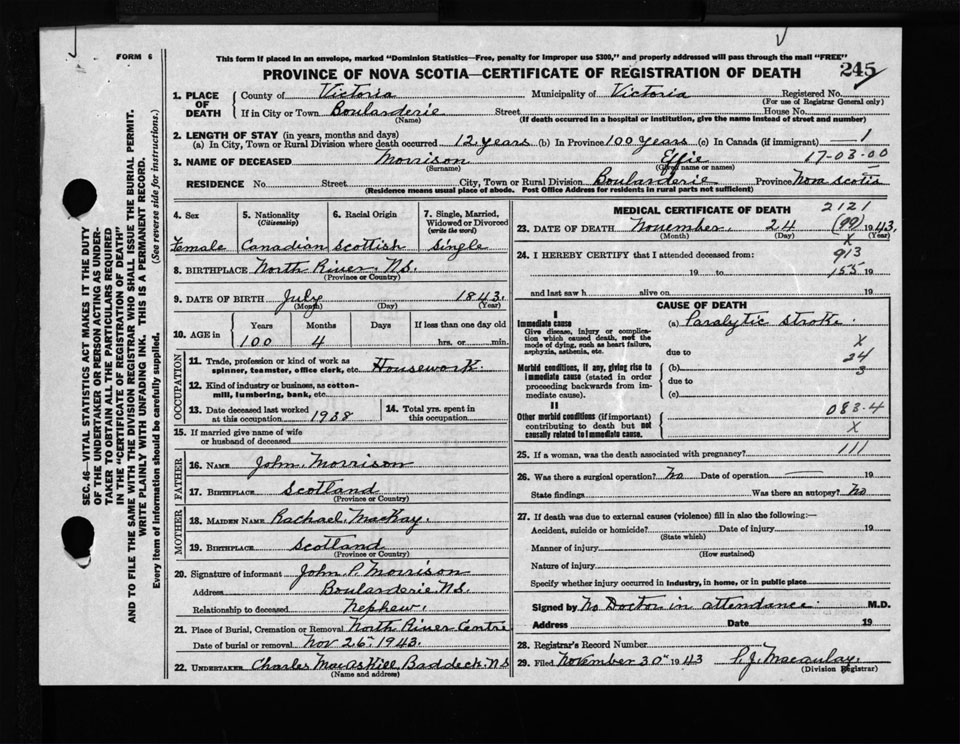 FORM 6
This form if placed in an envelope, marked "Dominion Statistics—Free, penalty for improper use $300," and properly addressed will pass through the mail "FREE"
PROVINCE OF NOVA SCOTIA—CERTIFICATE OF REGISTRATION OF DEATH
245
SEC. 46—VITAL STATISTICS ACT MAKES IT THE DUTY
OF THE UNDERTAKER OR PERSON ACTING AS UNDER-
TAKER TO OBTAIN ALL THE PARTICULARS REQUIRED
IN THE "CERTIFICATE OF REGISTRATION OF DEATH"
AND TO FILE THE SAME WITH THE DIVISION REGISTRAR WHO SHALL ISSUE THE BURIAL PERMIT.
WRITE PLAINLY WITH UNFADING INK. THIS IS A PERMANENT RECORD.
Every item of Information should be carefully supplied. (See reverse side for instructions.)
1. PLACE OF DEATH
County of Victoria Municipality of Victoria Registered No.
(For use of Registrar General only)
If in City or Town Boulanderie Street House No.
(Name) (If death occurred in a hospital or institution, give the name instead of street and number)
2. LENGTH OF STAY (in years, months and days)
(a) In City, Town or Rural Division where death occurred 12 years (b) In Province 100 years (c) In Canada (if immigrant) 1
3. NAME OF DECEASED Morrison Effie 17-03-00
(Surname) (Given name or names)
RESIDENCE No. Street City, Town or Rural Division Boulanderie Province Nova Scotia
(Residence means usual place of abode. Post Office Address for residents in rural parts not sufficient)
4. Sex
Female
5. Nationality
(Citizenship)
Canadian
6. Racial Origin
Scottish
7. Single, Married,
Widowed or Divorced
(write the word)
Single
8. BIRTHPLACE North River. N.S.
(Province or Country)
9. DATE OF BIRTH July 1843.
(Month) (Day) (Year)
10. AGE in
Years Months Days If less than one day old
100 4 hrs. or min.
OCCUPATION
11. Trade, profession or kind of work as
spinner, teamster, office clerk, etc. Housework.
12. Kind of industry or business, as cotton-
mill, lumbering, bank, etc.
13. Date deceased last worked
at this occupation 1938
14. Total yrs. spent in
this occupation
15. If married give name of wife
or husband of deceased
FATHER
16. NAME John Morrison
17. BIRTHPLACE Scotland
(Province or Country)
MOTHER
18. MAIDEN NAME Rachael MacKay.
19. BIRTHPLACE Scotland
(Province or Country)
20. Signature of informant John P. Morrison
Address Boulanderie N.S.
Relationship to deceased Nephew.
21. Place of Burial, Cremation or Removal North River Centre
Date of burial or removal Nov 26th 1943.
22. UNDERTAKER Charles MacAskill Baddeck. N.S
(Name and address)
MEDICAL CERTIFICATE OF DEATH 2121
23. DATE OF DEATH November. 24 1943.
(Month) (Day) (Year)
X
24. I HEREBY CERTIFY that I attended deceased from: 913
19 to 155 19
and last saw h alive on 19
CAUSE OF DEATH
I
Immediate cause
Give disease, injury or complica-
tion which caused death, not the
mode of dying, such as heart failure,
asphyxia, asthenia, etc.
(a) Paralytic Stroke.
X
due to
24
Morbid conditions, if any, giving rise to
immediate cause (stated in order
proceeding backwards from im-
mediate cause).
(b) 3
due to
(c)
II
Other morbid conditions (if important)
contributing to death but not
causally related to immediate cause.
083-4
X
25. If a woman, was the death associated with pregnancy? 111
26. Was there a surgical operation? No Date of operation 19
State findings Was there an autopsy? No
27. If death was due to external causes (violence) fill in also the following:—
Accident, suicide or homicide? Date of injury 19
(State which)
Manner of injury
(How sustained)
Nature of injury
Specify whether injury occurred in industry, in home, or in public place
Signed by No Doctor in attendance. M.D.
Address Date 19
28. Registrar's Record Number
29. Filed November 30th 1943 P. J. Macaulay.
(Division Registrar)